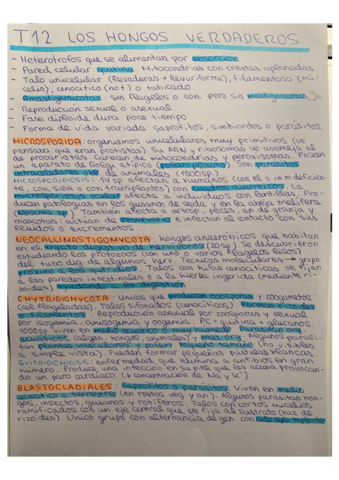 T12 LOS HONGOS VERDADEROS
- Heterótrofos que se alimentan por absorción
- Pared celular quitina. Mitocondrias con crestas aplanadas
- Talo unicelular (levaduras + levuriforme), filamentoso (mi-
celio), cenocítico (no t) o tabicado
- Amastigomicotas sin flagelos o con pero sin mastigonemas
- Reproducción sexual o asexual
- Fase diploide dura poco tiempo
- Forma de vida variada: saprófitos, simbiontes o parásitos
MICROSPORIDA: organismos unicelulares muy primitivos (se
pensaba que eran protistas). Su ARN y ribosomas se asemeja al
de procariotas. Carecen de mitocondrias y peroxisomas. Poseen
un aparato de Golgi atípico. Son parásitos
intracelulares de animales (1500sp.)
MICROSPORIDIOSIS: 14 sp afectan a humanos (con el s. inm deficien-
te, con SIDA o con transplantes) con
afecta a individuos con lentillas. Pro-
ducen patologías en los gusanos de seda y en la abeja melífera
(Nosema sp). También afecta a artróp, peces, an. de granja y
mascotas
NEOCALLIMASTIGOMYCOTA: hongos anaeróbicos que habitan
en el tracto digestivo de herbívoros (20 sp.). Se descubrieron
estudiando los protozoos (con uno o varios flagelos lisos)
del tubo dig de algunos herv. Técnicas moleculares → grupo
próximo a los quitridios. Talos con rutas cenocíticas se fijan
a las paredes intestinales o a la hierba ingerida (mediante ri-
zoides) ayudando a la digestión
CHYTRIDIOMYCOTA: Únicos que producen zoosporas y zoogametos
(uniflagelados). Talos sifonados (cenocíticos). Forman rizoides
o filamentos. Reproducción asexual por zoosporas y sexual
por isogamia, anisogamia y oogamia. PC = quitina + glucanos
1000sp. Viven en medio acuático o muy húmedo. Parásitan org
acuáticos (algas, vegs, animales) y
a simple vista). Pueden formar pequeñas pústulas blancas.
QUITRIDIOMICOSIS: enfermedad que elimina a anfibios en gran
número. Produce una infección en su piel que les acaba provocan-
do un paro cardíaco (↓ concentración de Na y K)
BLASTOCLADIALES: Saprófitos o parásitos. Viven en medios
acuático o terrestre (en restos veg y an). Algunos parasitan hon-
gos, insectos, gusanos y rotíferos. Talos con cortos micelios
ramificados con un eje central que se fija al sustrato (haz de
rizoides). Único grupo con alternancia de gen. con